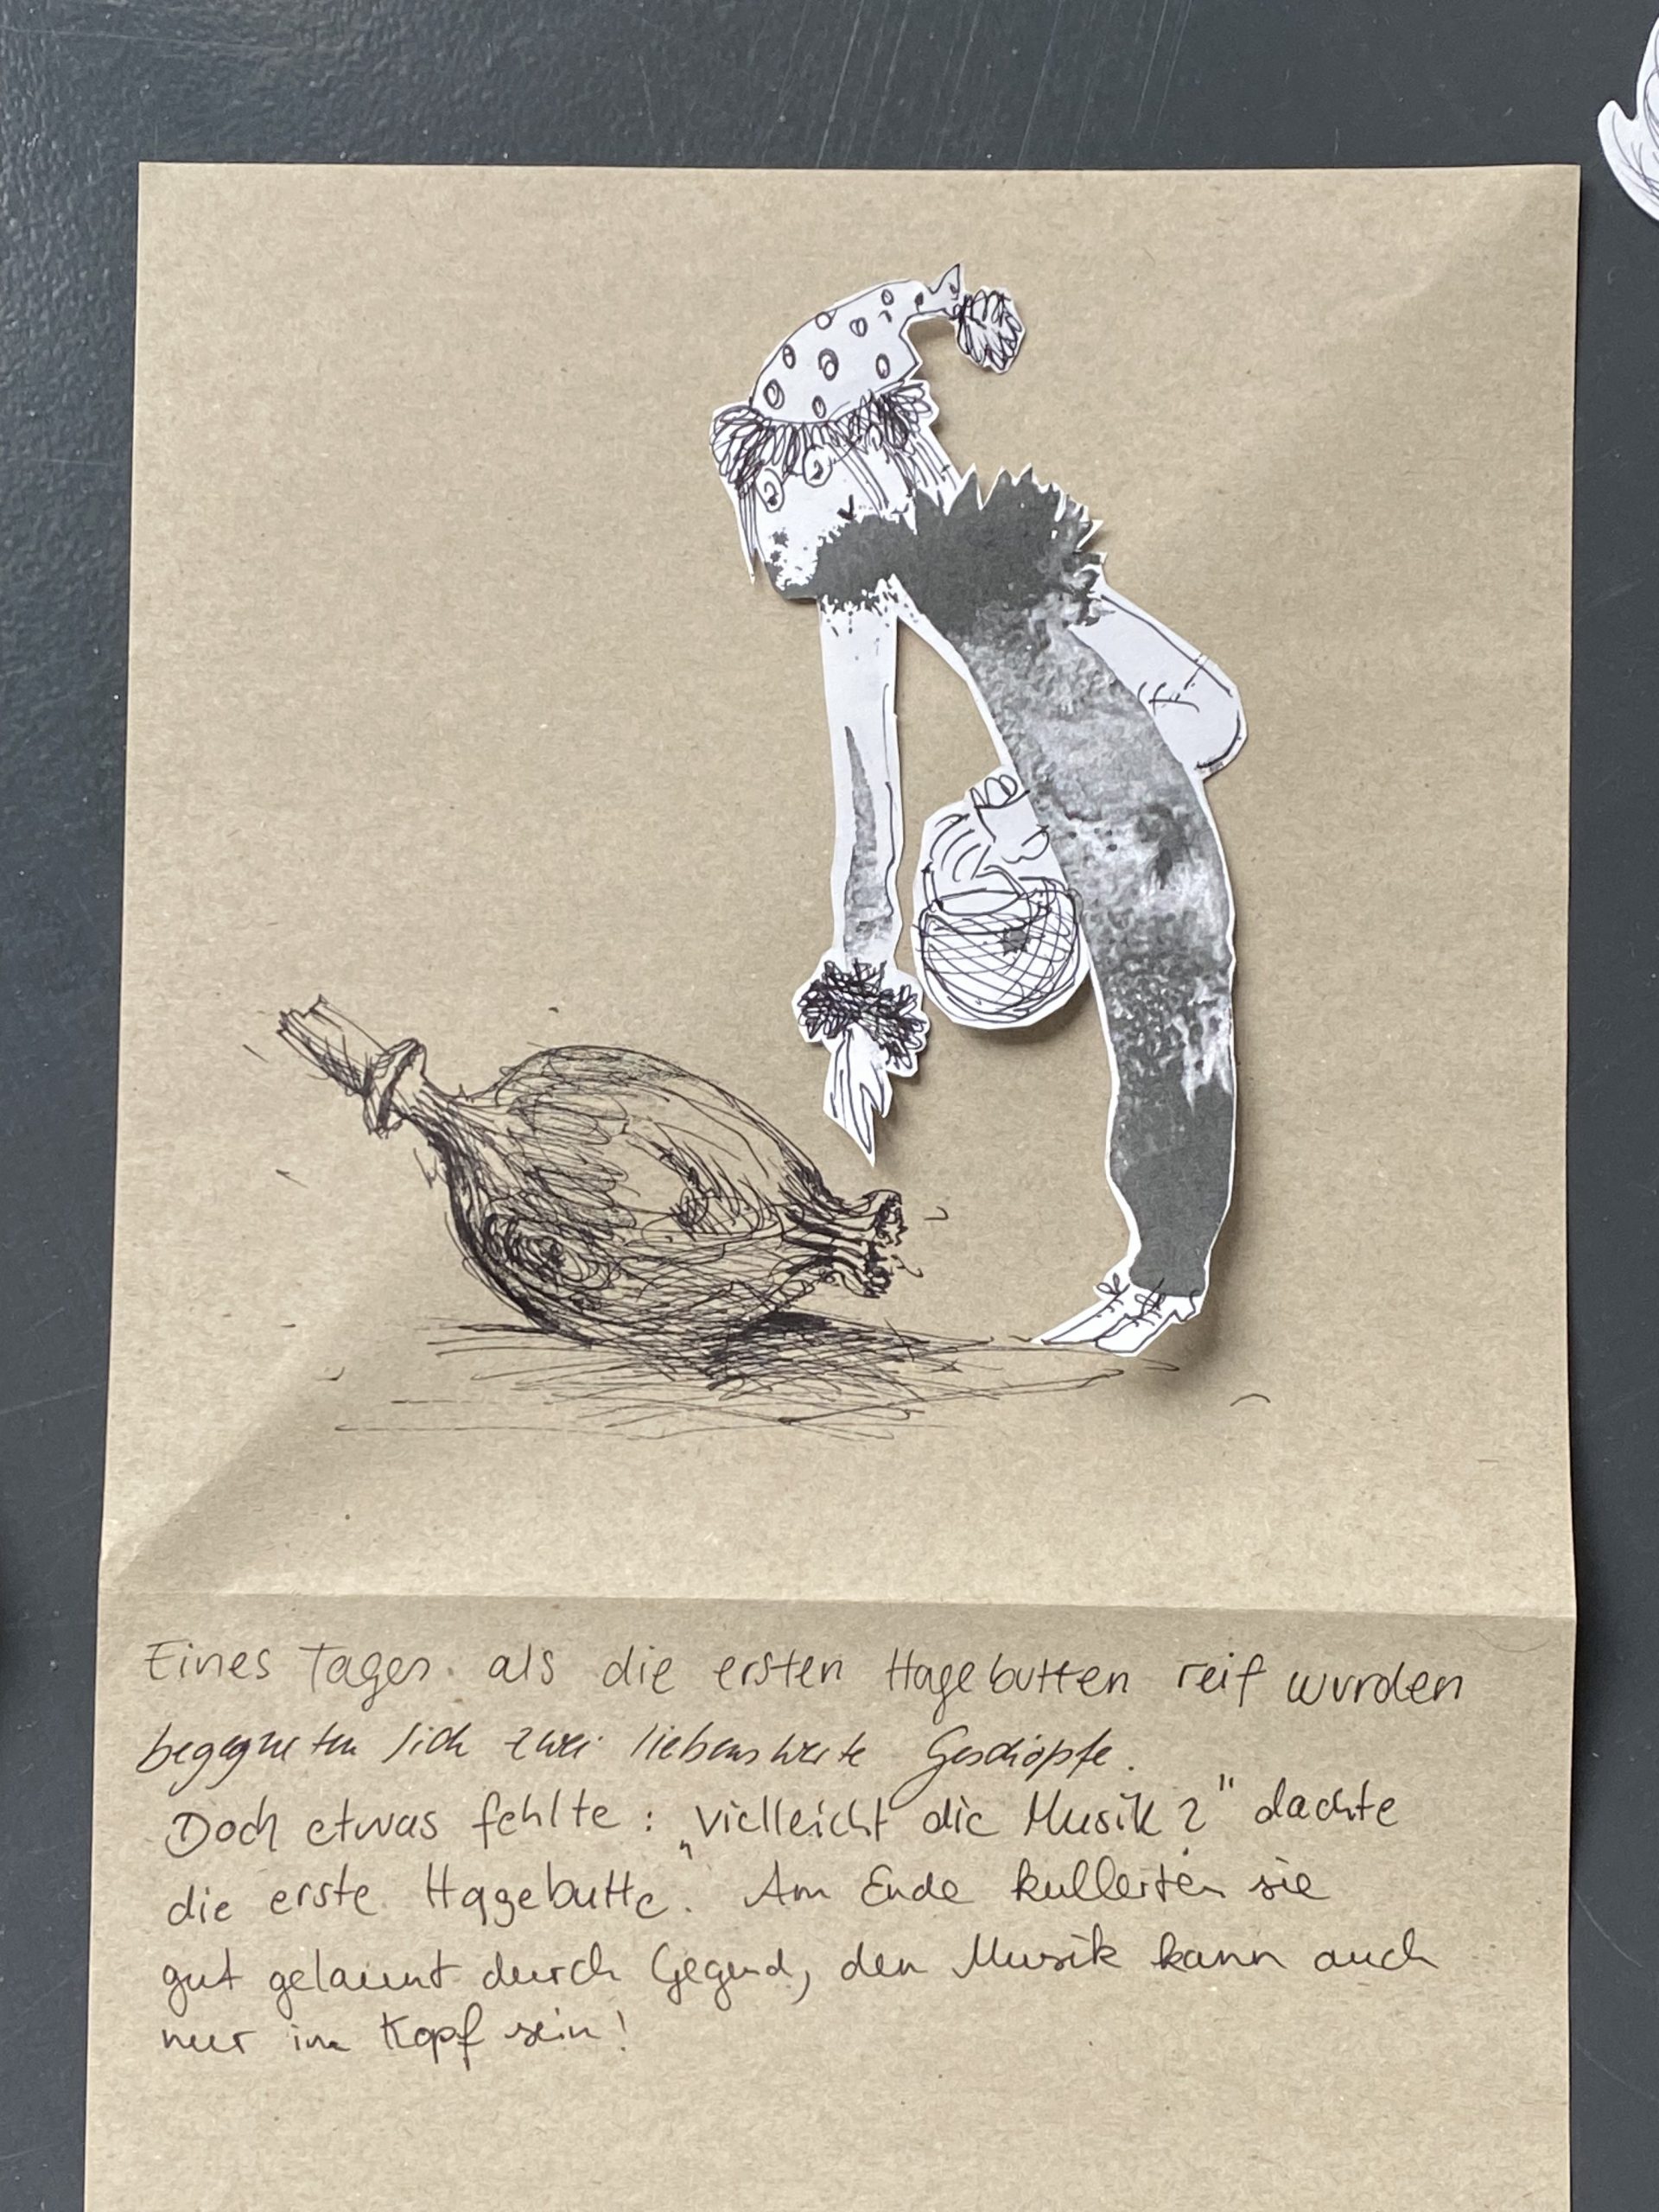 Eines Tages. als die ersten Hagebutten reif wurden
begegneten sich zwei liebenswerte Geschöpfe.
Doch etwas fehlte : „Vielleicht die Musik?" dachte
die erste Hagebutte. Am Ende kullerten sie
gut gelaunt durch Gegend, den Musik kann auch
nur im Kopf sein!